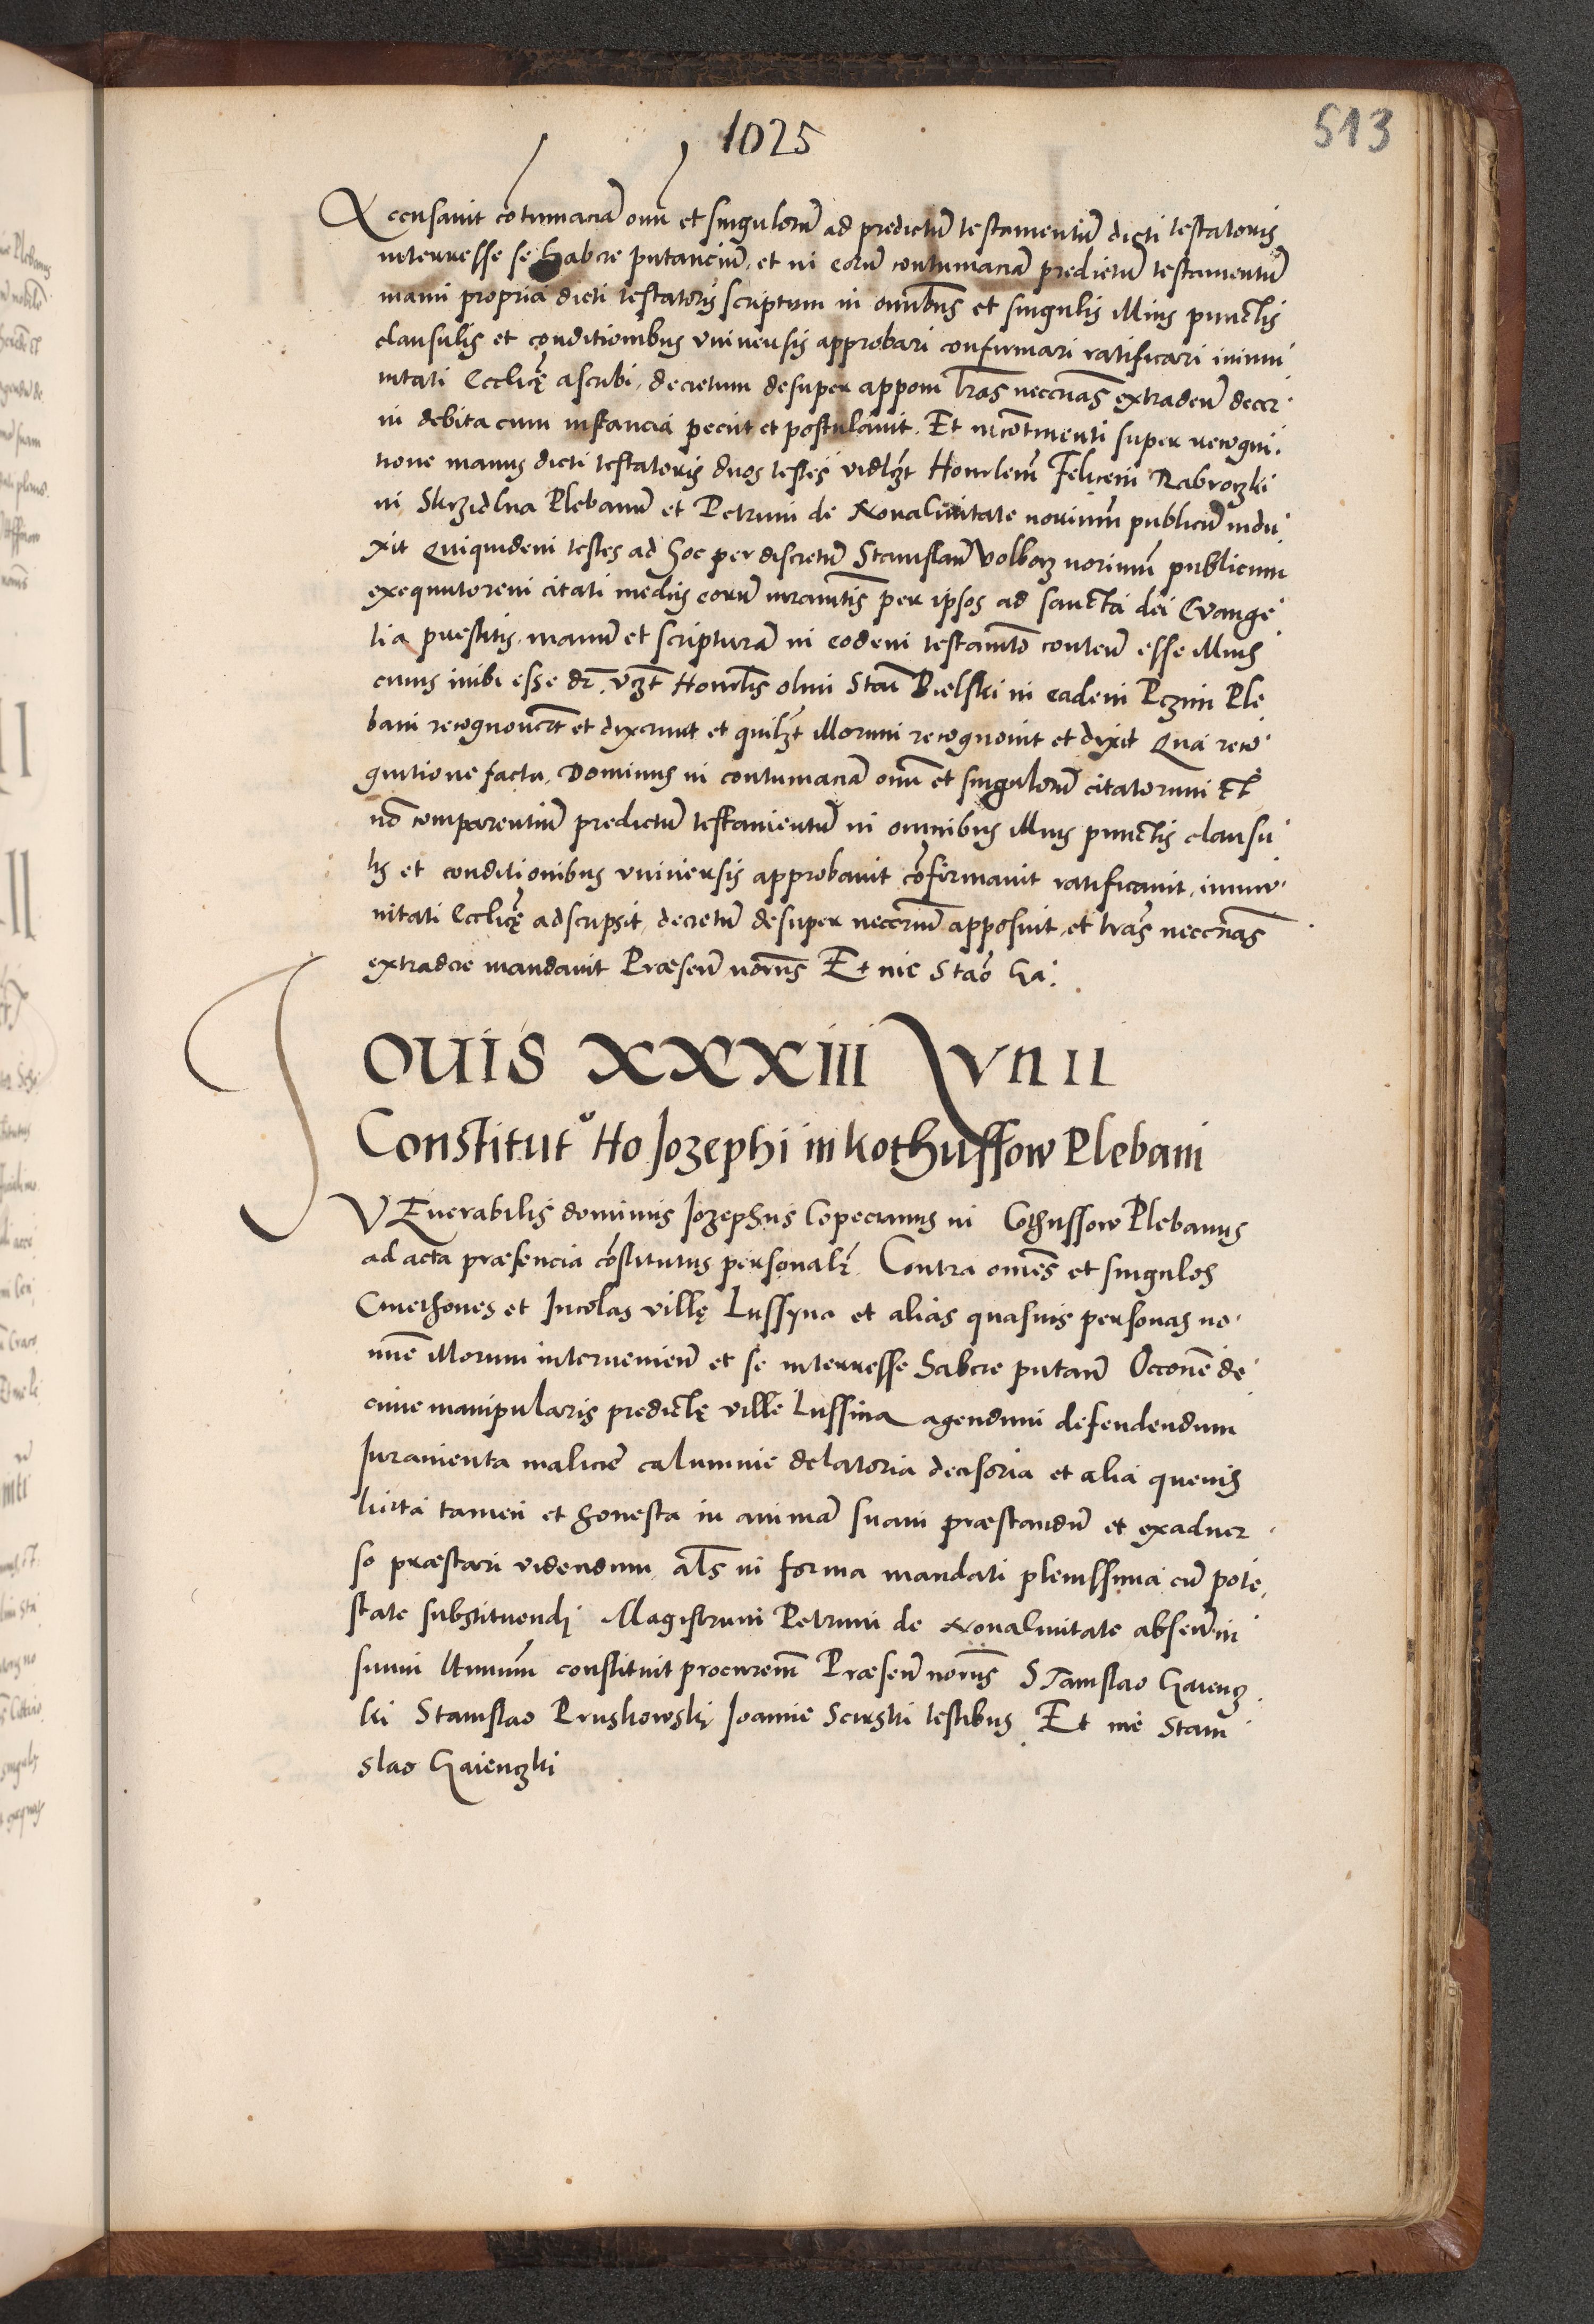 1025
513
Accusavit cōtumaciā om̄ et singulorū ad predictū testamentū dicti testatoris
interresse se habere putanciū, et in eorū contumaciā predictū testamentū
manu propria dicti testatoris scriptum in om̄ibus et singulis illius punctis
clausulis et conditionibus universis approbari confirmari ratificari inmu
nitati Eccliȩ ascribi, decretum desuper apponi l̄ras neccr̄ias extradeñ decer
ni debita cum instancia peciit et postulavit. Et incōtinenti super recogni
tione manus dicti testatoris duos testes vidlzt Honrlem̄ Felicem Rabroczki
in Skrzidlna Plebanū et Petrum de Xovalivitate noriūm publicū indu
xit Quiquidem testes ad hoc per discretū Stanislaū Volborz noriūm publicum
exequutorem citati mediis eorū iuramtis per ipsos ad sancta dei Evange
lia prestitis, manū et scripturā in eodem testamto conteñ esse illius
cuius inibi esse dr̄, vzt Honrlis olim Stai Bielski in eadem Pczim Ple
bani recognoverūt et dixerunt et quilzt illorum recognovit et dixit Qua reco
gnitione facta, Dominus in contumaciā om̄ et singulorū citatorum et
nō comparentiū predictū testamentū in omnibus illius punctis clausu
lis et conditionibus universis approbavit cōfirmavit ratificavit, inmu
nitati Eccliȩ adscripsit, decretū desuper neccriū apposuit, et l̄ras neccr̄ias
extradere mandavit Præseñ noriis Et me Stāo Ga:
JOUIS XXXIII IVNII
Constitutͦ Ho Jozephi in Kothussow Plebani
VEnerabilis dominus Jozephus Copecinus in Cothussow Plebanus
ad acta præsencia cōstitutus personalr̄. Contra om̄es et singulos
Cmethones et Incolas villȩ Lussyna et alias quasvis personas no
mīe illorum interveniēn et se interresse habere putañ Occōne de
cime manipularis predictȩ ville Lussina agendum defendendum
Juramenta malicie calumnie delatoria decisoria et alia quevis
licita tamen et honesta in animā suam præstandū et exadver
so præstari videndum, al̄s in forma mandati plenissima cū pote
state substituendi Magistrum Petrum de Xovalivitate abseñ in
suum ltimum constituit procurem̄ Præseñ noriis STanislao Gaiencz
ki Stanislao Pruskowski Joanne Scirski testibus Et me Stani
slao Gaienczki